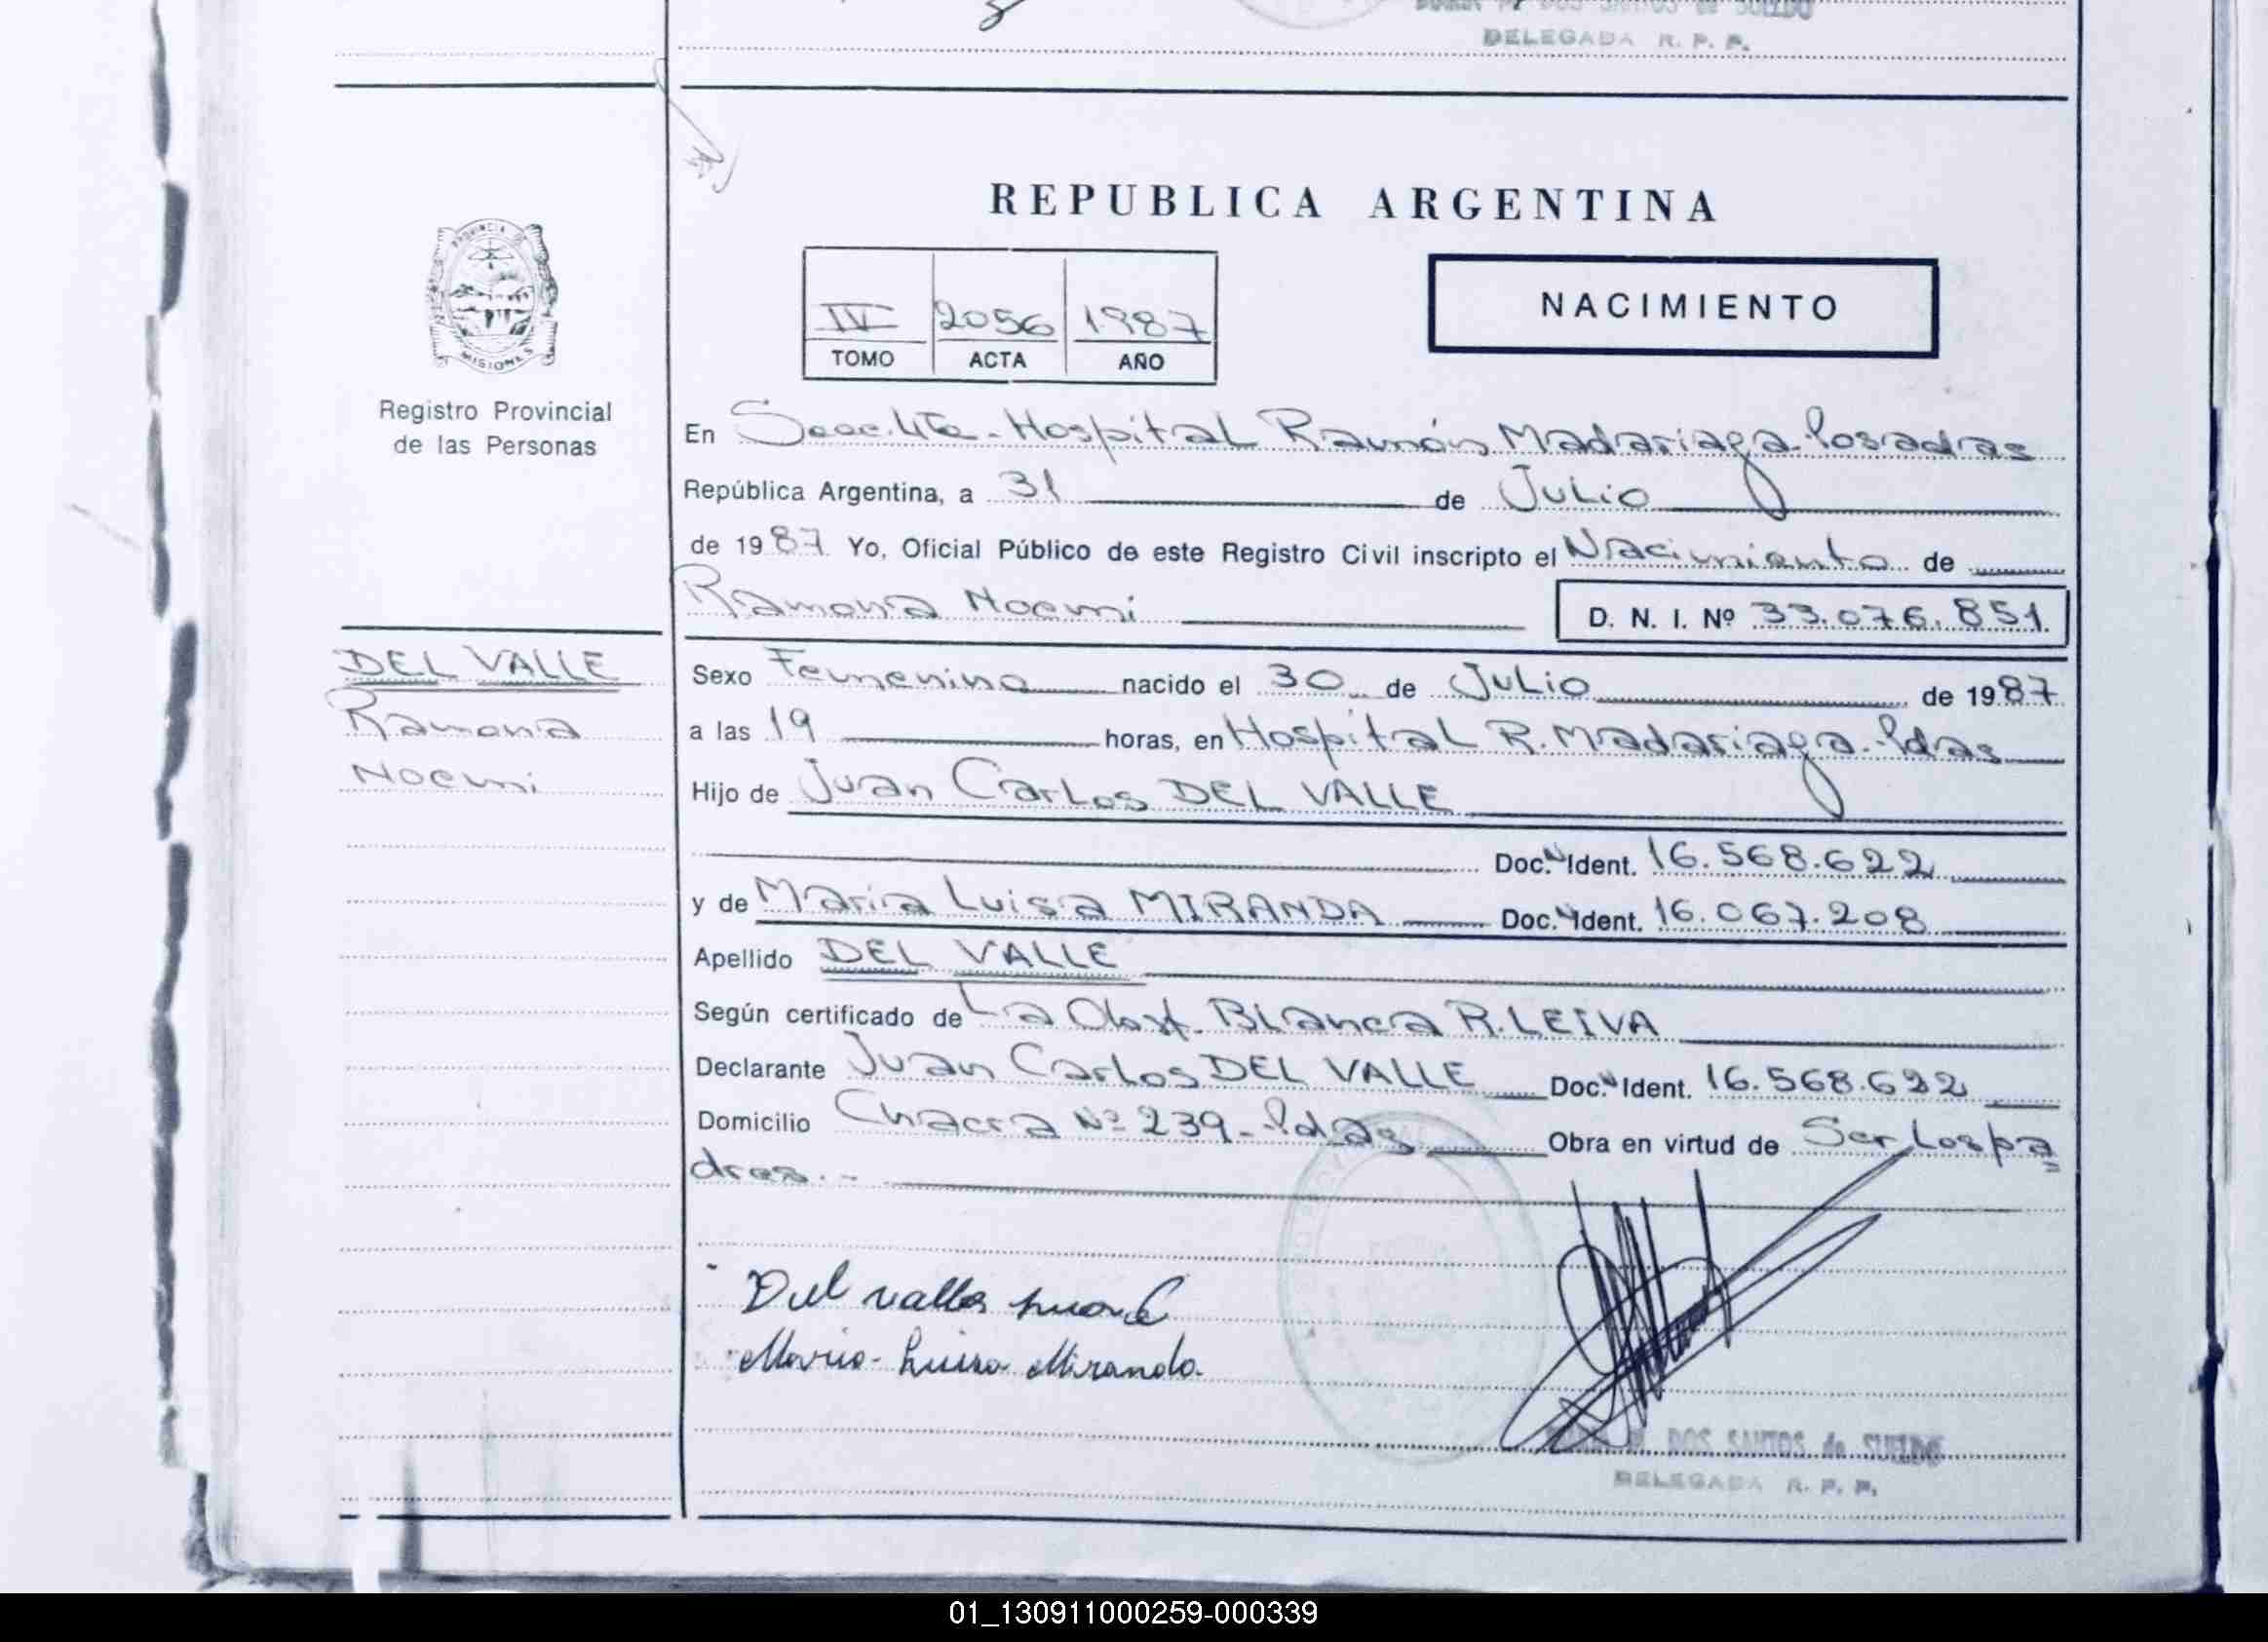 DELEGADA R. P. P.
REPUBLICA ARGENTINA
IV 2056 1987
TOMO ACTA AÑO
NACIMIENTO
PROVINCIA DE
MISIONES
Registro Provincial
de las Personas
En Secc. 4ta - Hospital Ramón Madariaga - Posadas
República Argentina, a 31 de Julio
de 1987 Yo, Oficial Público de este Registro Civil inscripto el Nacimiento de
Ramona Noemi D. N. I. Nº 33.076.851
DEL VALLE
Ramona
Noemi
Sexo Femenino nacido el 30 de Julio de 1987
a las 19 horas, en Hospital R. Madariaga - Pdas
Hijo de Juan Carlos DEL VALLE
Doc. Ident. 16.568.622
y de Maria Luisa MIRANDA Doc. Ident. 16.067.208
Apellido DEL VALLE
Según certificado de La Obst. Blanca R. LEIVA
Declarante Juan Carlos DEL VALLE Doc. Ident. 16.568.622
Domicilio Chacra Nº 239 - Pdas Obra en virtud de Ser los pa
dres. -
Del valle Juan C
Maria Luisa Miranda
DOS SANTOS de SUELDO
DELEGADA R. P. P.
01_130911000259-000339